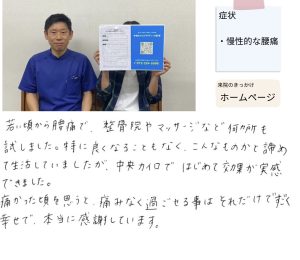 症状
・慢性的な腰痛
来院のきっかけ
ホームページ
若い頃から腰痛で、整骨院やマッサージなど何カ所も
試しました。特に良くなることもなく、こんなものかと諦め
て生活していましたが、中央カイロではじめて効果が実感
できました。
痛かった頃を思うと、痛みなく過ごせる事はそれだけで
幸せで、本当に感謝しています。